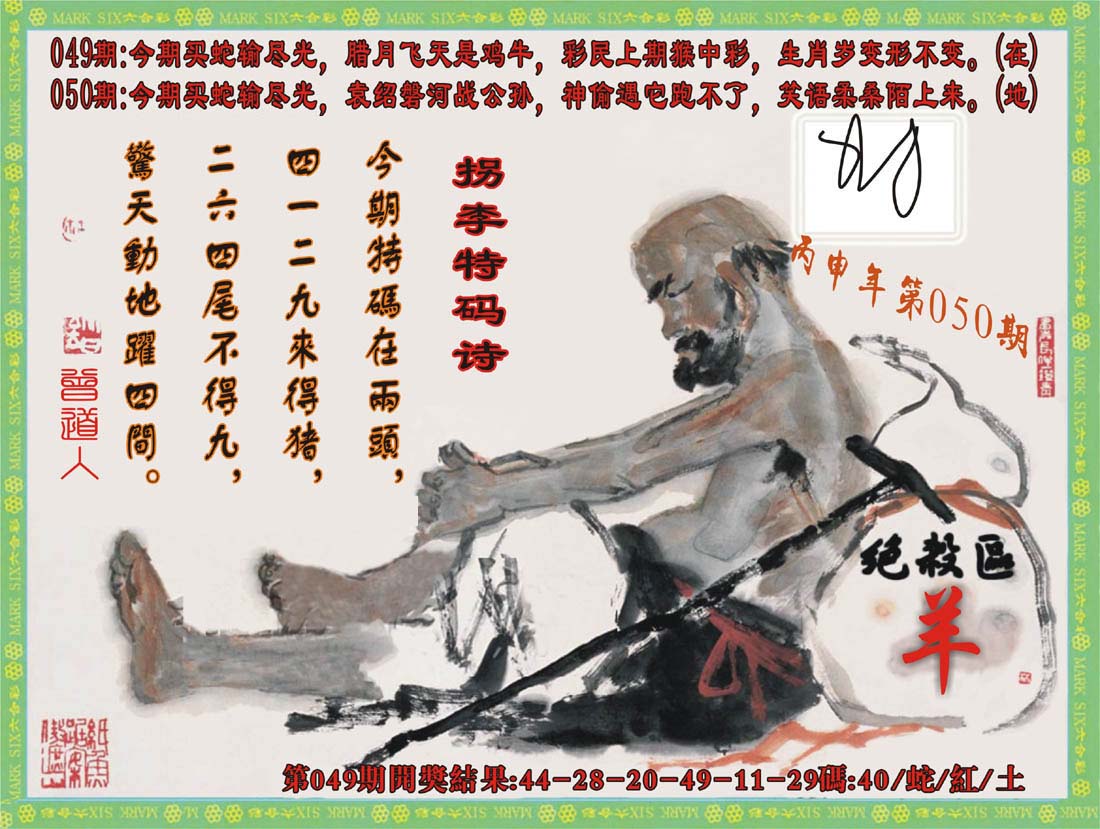 MARK SIX六合彩
049期:今期买蛇输尽光，腊月飞天是鸡牛，彩民上期猴中彩，生肖岁变形不变。(在)
050期:今期买蛇输尽光，袁绍磐河战公孙，神偷遇它跑不了，笑语柔桑陌上来。(地)
丙申年第050期
拐李特码诗
今期特碼在兩頭，
四一二九來得猪，
二六四尾不得九，
驚天動地躍四間。
曾道人
绝殺區
羊
第049期開獎結果:44-28-20-49-11-29碼:40/蛇/紅/土